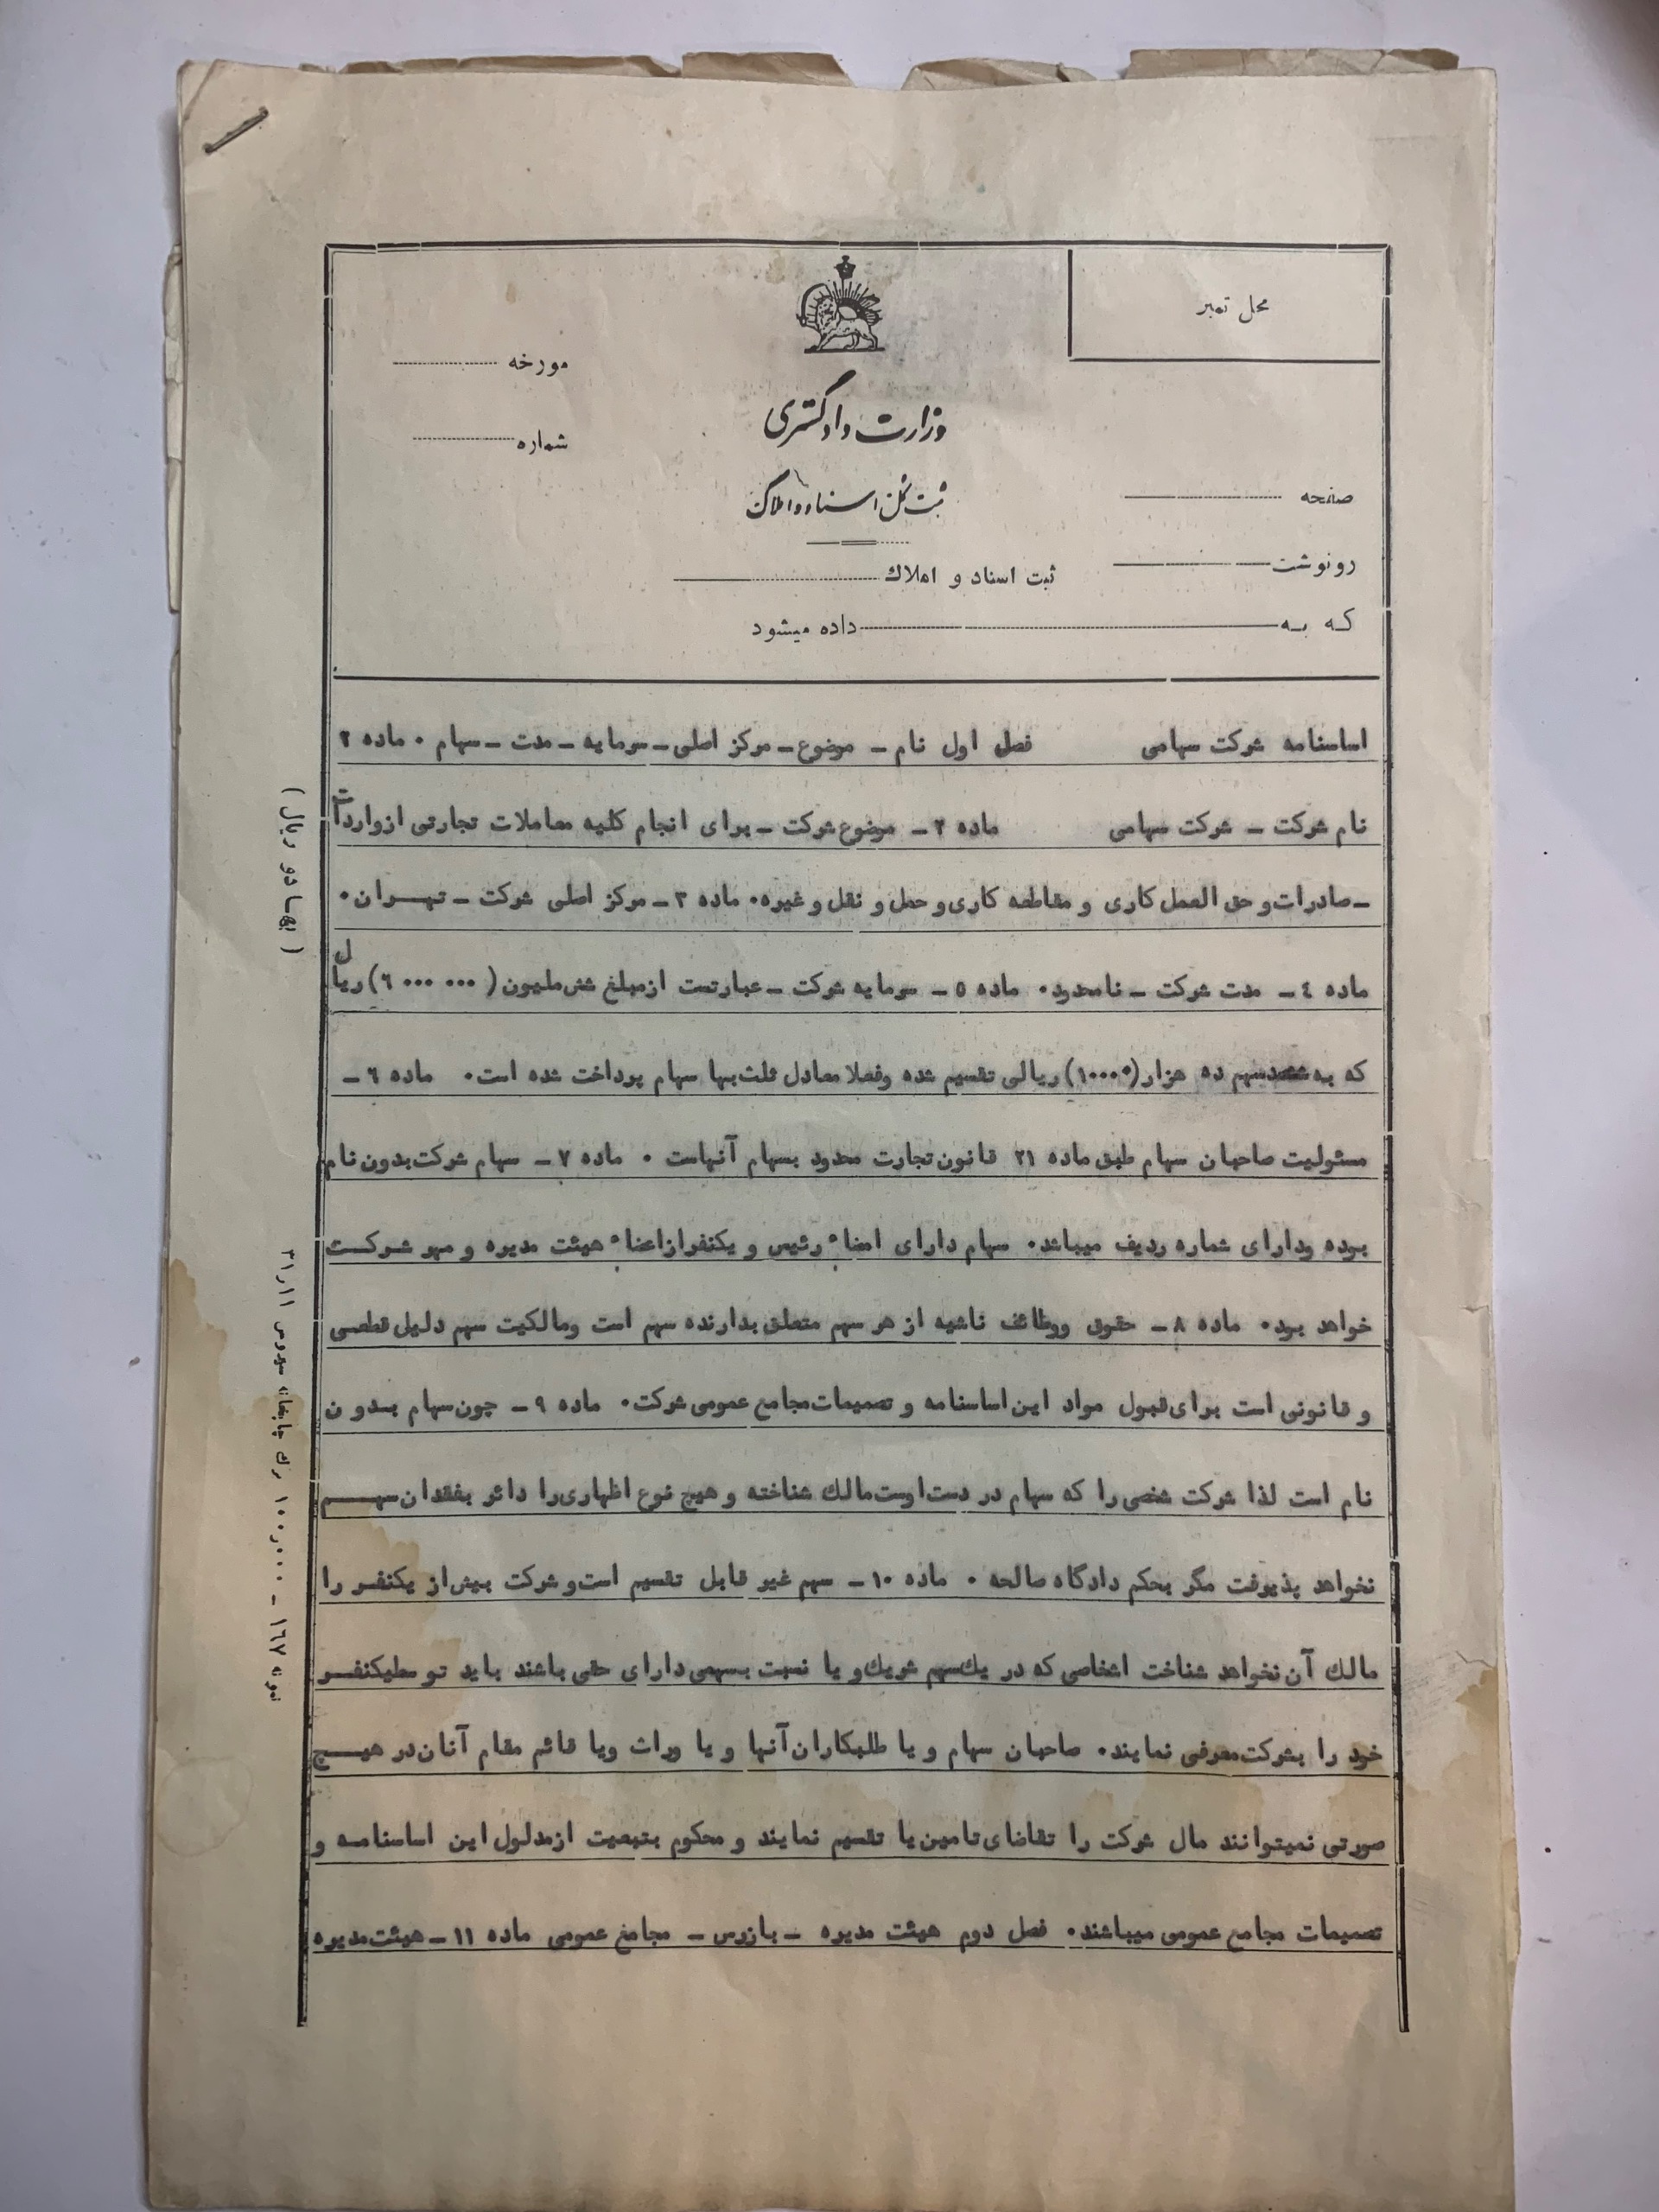 محل تمبر
مورخه
وزارت دادگستری
شماره
ثبت کل اسناد و املاک
صفحه
رونوشت
ثبت اسناد و املاك
که به داده میشود
اساسنامه شرکت سهامی فصل اول نام ـ موضوع ـ مرکز اصلی ـ سرمایه ـ مدت ـ سهام ۰ ماده ۲
نام شرکت ـ شرکت سهامی ماده ۲ ـ موضوع شرکت ـ برای انجام کلیه معاملات تجارتی از واردات
ـ صادرات و حق العمل کاری و مقاطعه کاری و حمل و نقل و غیره۰ ماده ۳ ـ مرکز اصلی شرکت ـ تهران۰
ماده ٤ ـ مدت شرکت ـ نامحدود۰ ماده ٥ ـ سرمایه شرکت ـ عبارتست از مبلغ شش ملیون (٦ ۰۰۰ ۰۰۰) ریال
که به ششصد سهم ده هزار (۱۰۰۰۰) ریالی تقسیم شده و فعلا معادل ثلث بها سهام پرداخت شده است۰ ماده ٦ ـ
مسئولیت صاحبان سهام طبق ماده ۲۱ قانون تجارت محدود بسهام آنهاست ۰ ماده ۷ ـ سهام شرکت بدون نام
بوده ودارای شماره ردیف میباشد۰ سهام دارای امضاء رئیس و یکنفر از اعضاء هیئت مدیره و مهر شرکت
خواهد بود۰ ماده ۸ ـ حقوق ووظائف ناشیه از هر سهم متعلق بدارنده سهم است ومالکیت سهم دلیل قطعی
و قانونی است برای قبول مواد این اساسنامه و تصمیمات مجامع عمومی شرکت۰ ماده ۹ ـ چون سهام بدون
نام است لذا شرکت شخصی را که سهام در دست اوست مالك شناخته و هیچ نوع اظهاری را دائر بفقدان سهم
نخواهد پذیرفت مگر بحکم دادگاه صالحه ۰ ماده ۱۰ ـ سهم غیر قابل تقسیم است و شرکت بیش از یکنفر را
مالك آن نخواهد شناخت اشخاصی که در یك سهم شریك و یا نسبت بسهمی دارای حقی باشند باید توسط یکنفر
خود را بشرکت معرفی نمایند۰ صاحبان سهام و یا طلبکاران آنها و یا وراث ویا قائم مقام آنان در هیچ
صورتی نمیتوانند مال شرکت را تقاضای تامین یا تقسیم نمایند و محکوم بتبعیت از مدلول این اساسنامه و
تصمیمات مجامع عمومی میباشند۰ فصل دوم هیئت مدیره ـ بازرس ـ مجامع عمومی ماده ۱۱ ـ هیئت مدیره
(بها دو ریال)
نمونه ۱٦۷ ـ ۱۰۰ر۰۰۰ رك چاپخانه